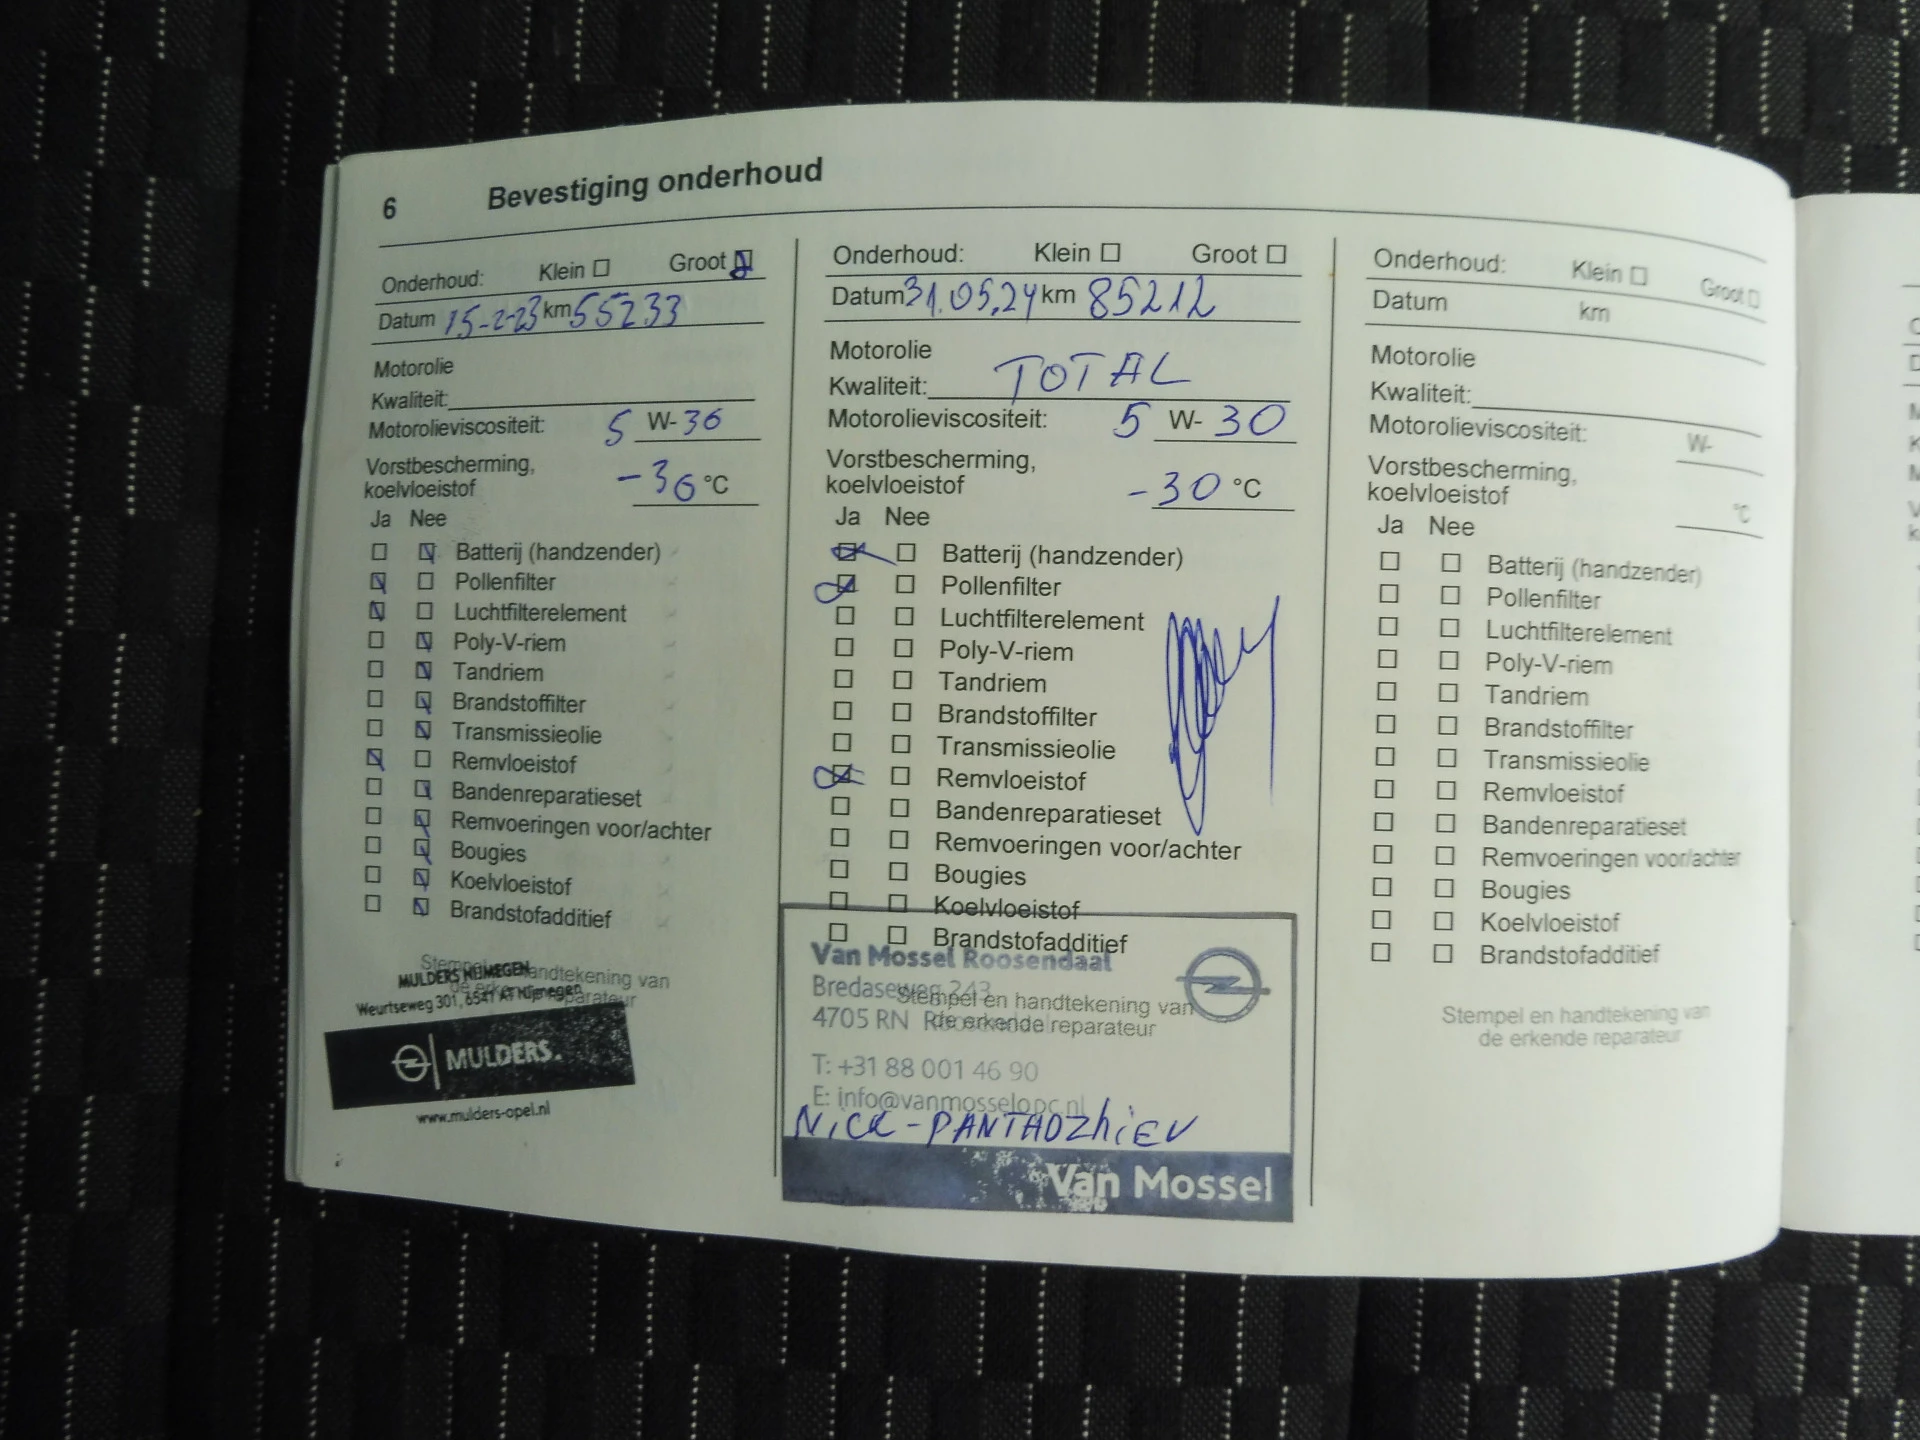 6 Bevestiging onderhoud
Onderhoud: Klein Groot
Datum 15-2-23 km 55233
Motorolie
Kwaliteit:
Motorolieviscositeit: 5 W-30
Vorstbescherming,
koelvloeistof -36 °C
Ja Nee
Batterij (handzender)
Pollenfilter
Luchtfilterelement
Poly-V-riem
Tandriem
Brandstoffilter
Transmissieolie
Remvloeistof
Bandenreparatieset
Remvoeringen voor/achter
Bougies
Koelvloeistof
Brandstofadditief
Stempel en handtekening van
de erkende reparateur
MULDERS NIJMEGEN
Weurtseweg 301, 6541 AT Nijmegen
MULDERS.
www.mulders-opel.nl
Onderhoud: Klein Groot
Datum 31.05.24 km 85212
Motorolie
Kwaliteit: TOTAL
Motorolieviscositeit: 5 W- 30
Vorstbescherming,
koelvloeistof -30 °C
Ja Nee
Batterij (handzender)
Pollenfilter
Luchtfilterelement
Poly-V-riem
Tandriem
Brandstoffilter
Transmissieolie
Remvloeistof
Bandenreparatieset
Remvoeringen voor/achter
Bougies
Koelvloeistof
Brandstofadditief
Van Mossel Roosendaal
Bredaseweg 243
Stempel en handtekening van
4705 RN Roosendaal
de erkende reparateur
T: +31 88 001 46 90
E: info@vanmosselopc.nl
NICK-PANTADZhiEV
Van Mossel
Onderhoud: Klein Groot
Datum km
Motorolie
Kwaliteit:
Motorolieviscositeit: W-
Vorstbescherming,
koelvloeistof °C
Ja Nee
Batterij (handzender)
Pollenfilter
Luchtfilterelement
Poly-V-riem
Tandriem
Brandstoffilter
Transmissieolie
Remvloeistof
Bandenreparatieset
Remvoeringen voor/achter
Bougies
Koelvloeistof
Brandstofadditief
Stempel en handtekening van
de erkende reparateur